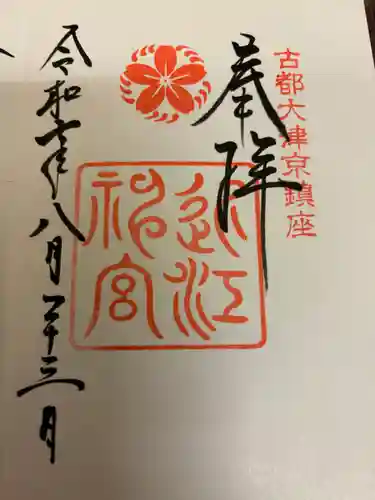 古都大津京鎮座
奉拝
近江神宮
令和六年八月二十三日